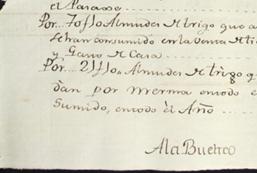 el Parage
Por Almudes de trigo que
se han consumido en la venta de
y Gano de Casa
Por Almudes de trigo q
dan por merma en todo e
sumido, en todo el Año
Ala Buelta